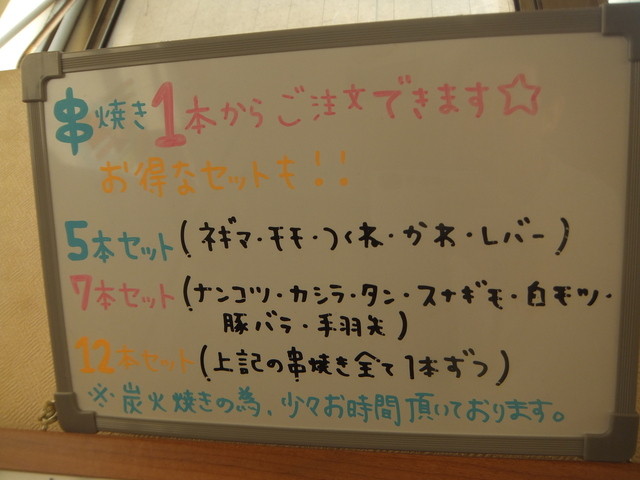 串焼き1本からご注文できます☆
お得なセットも!!
5本セット(ネギマ・モモ・つくね・かわ・レバー)
7本セット(ナンコツ・カシラ・タン・スナギモ・白モツ・
豚バラ・手羽先)
12本セット(上記の串焼き全て1本ずつ)
※炭火焼きの為、少々お時間頂いております。